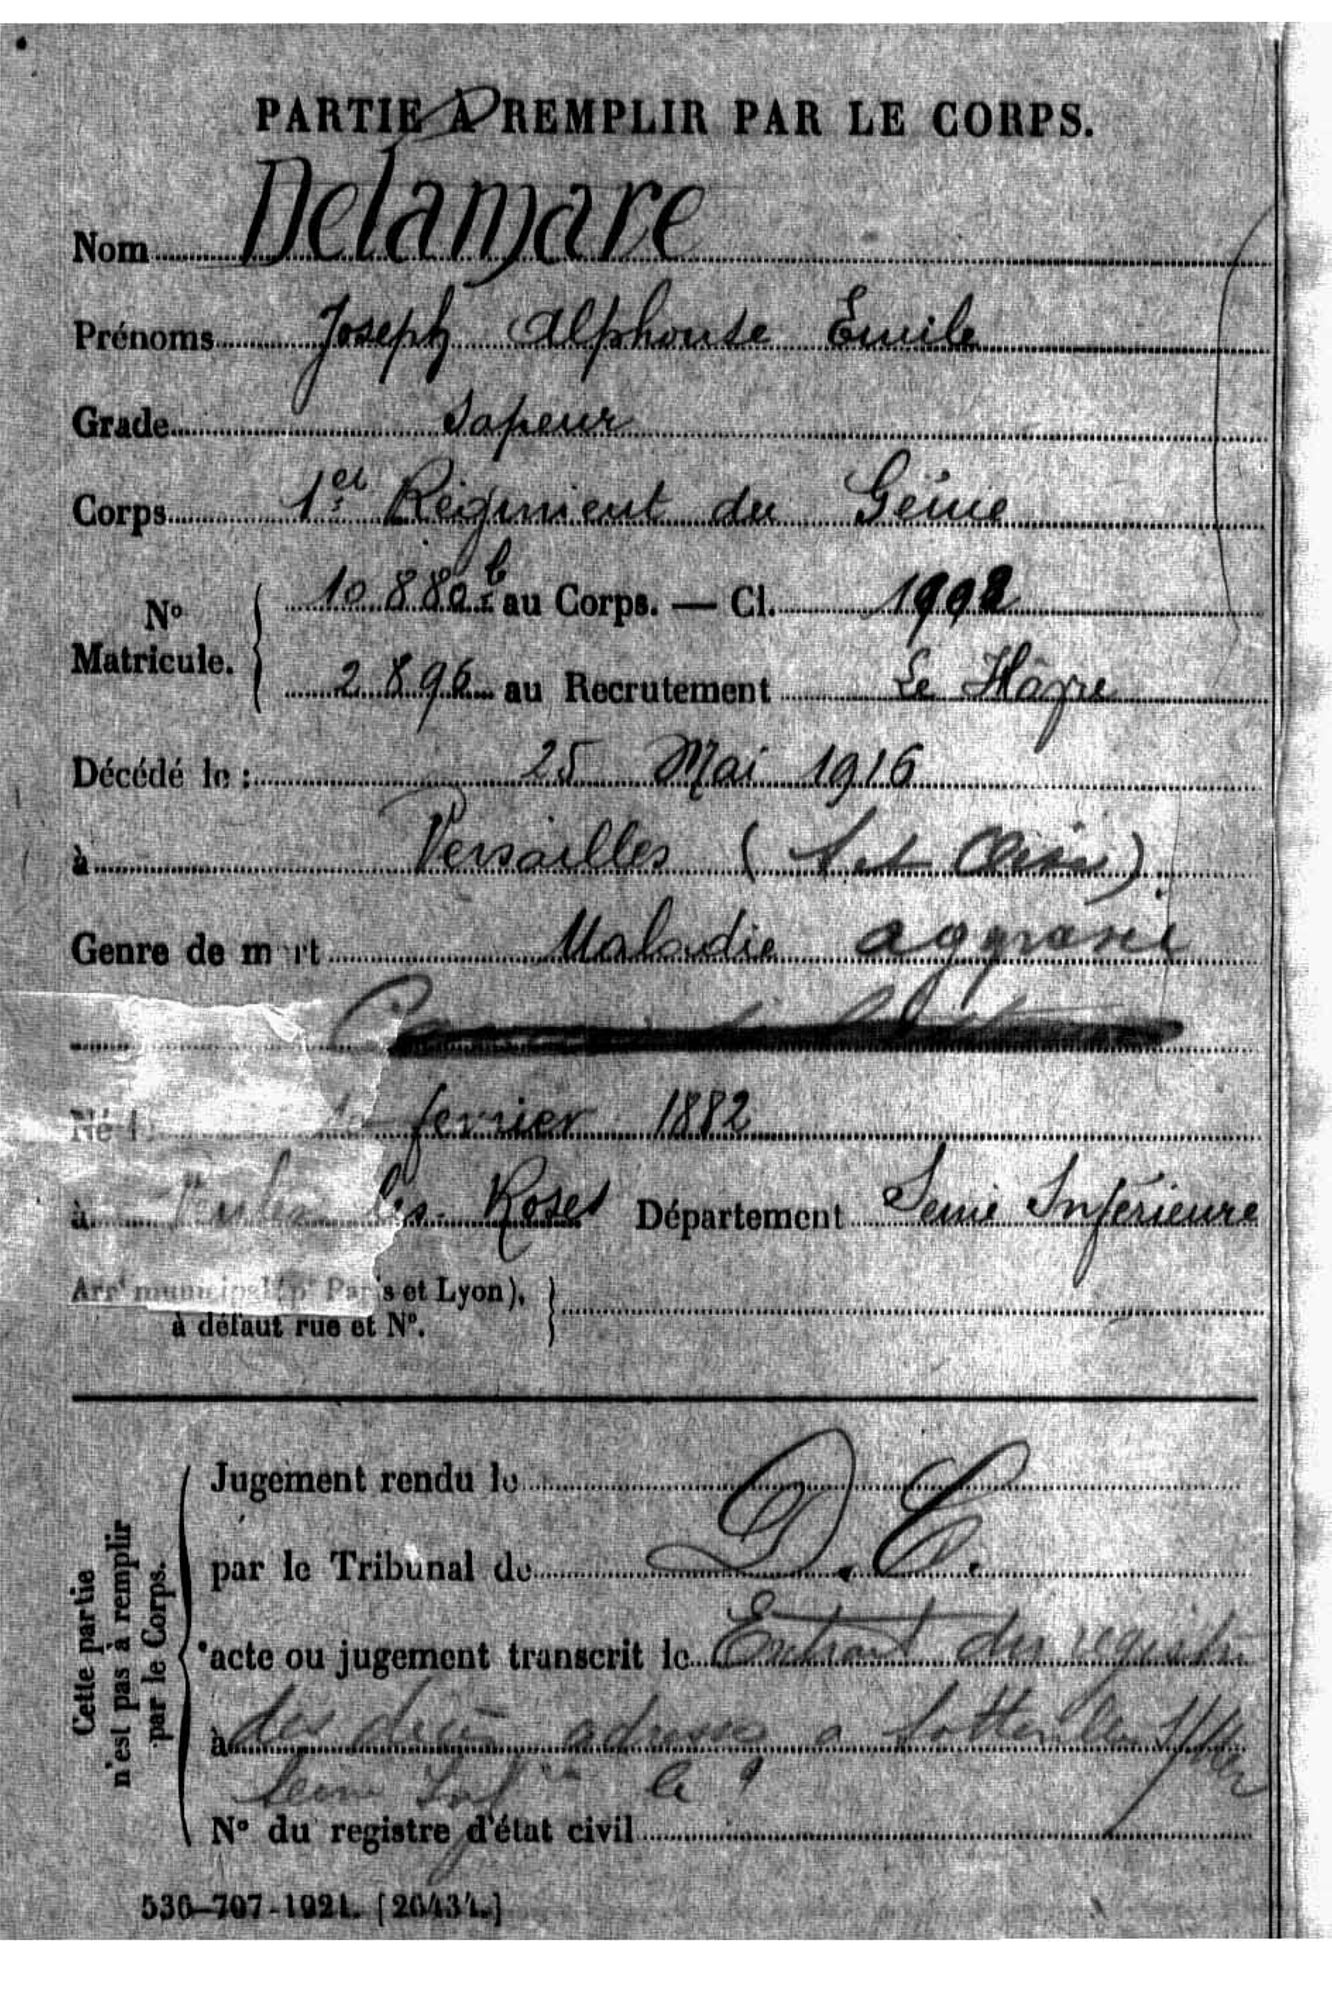 PARTIE A REMPLIR PAR LE CORPS.
Nom Delamare
Prénoms Joseph Alphonse Emile
Grade Sapeur
Corps 1er Régiment du Génie
No
Matricule.
10.880 au Corps. — Cl. 1902
2896 au Recrutement Le Hâvre
Décédé le : 25 Mai 1916
à Versailles (S et Oise)
Genre de mort Maladie aggravée
Né le février 1882
à Veules les Roses Département Seine Inférieure
Arrt municipal (pr Paris et Lyon),
à défaut rue et No.
Cette partie
n'est pas à remplir
par le Corps.
Jugement rendu le
par le Tribunal de D.C.
acte ou jugement transcrit le Extrait des registres
à des décès adressé a Sotteville
Seine Infre le
No du registre d'état civil
536-707-1921. [26434.]